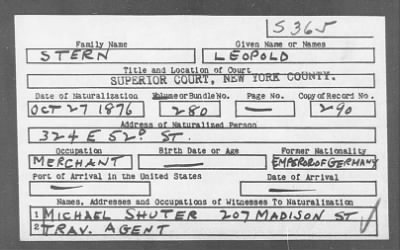 S365
Family Name Given Name or Names
STERN LEOPOLD
Title and Location of Court
SUPERIOR COURT, NEW YORK COUNTY.
Date of Naturalization Volume or Bundle No. Page No. Copy of Record No.
OCT 27 1876 280 — 290
Address of Naturalized Person
324 E 52D ST.
Occupation Birth Date or Age Former Nationality
MERCHANT — EMPEROR OF GERMANY
Port of Arrival in the United States Date of Arrival
— —
Names, Addresses and Occupations of Witnesses To Naturalization
1 MICHAEL SHUTER 207 MADISON ST
2 TRAV. AGENT